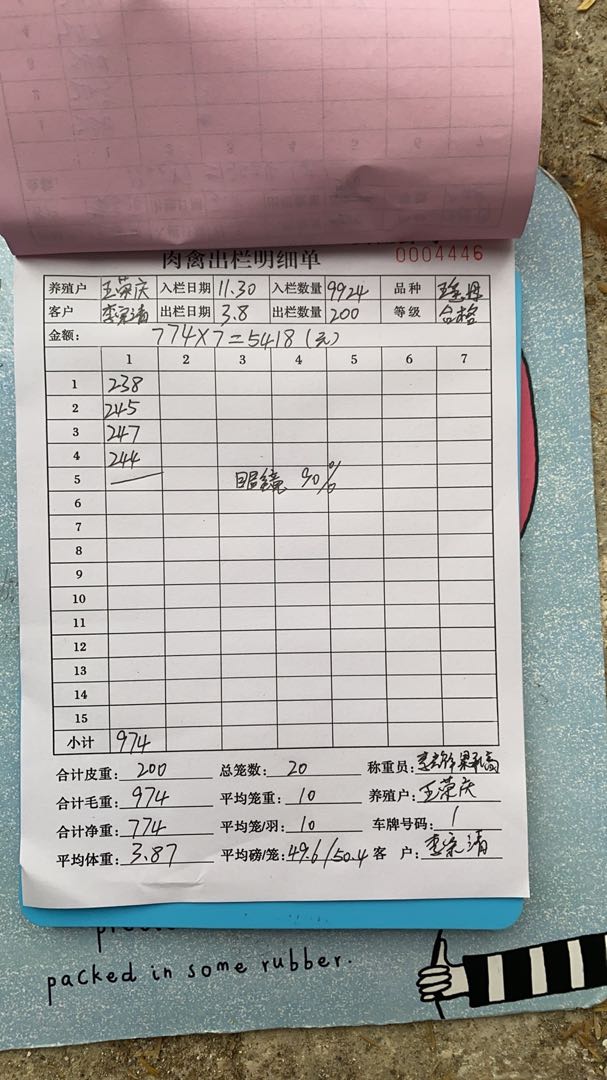 0004446
肉禽出栏明细单
养殖户 王荣庆 入栏日期 11.30 入栏数量 9924 品种
客户 出栏日期 3.8 出栏数量 200 等级 合格
金额: 774×7=5418(元)
1 2 3 4 5 6 7
1 238
2 245
3 247
4 244
5 —
眼镜 90%
6
7
8
9
10
11
12
13
14
15
小计 974
合计皮重: 200 总笼数: 20 称重员:
合计毛重: 974 平均笼重: 10 养殖户: 王荣庆
合计净重: 774 平均笼/羽: 10 车牌号码: 1
平均体重: 3.87 平均磅/笼: 49.6/50.4 客户:
packed in some rubber.